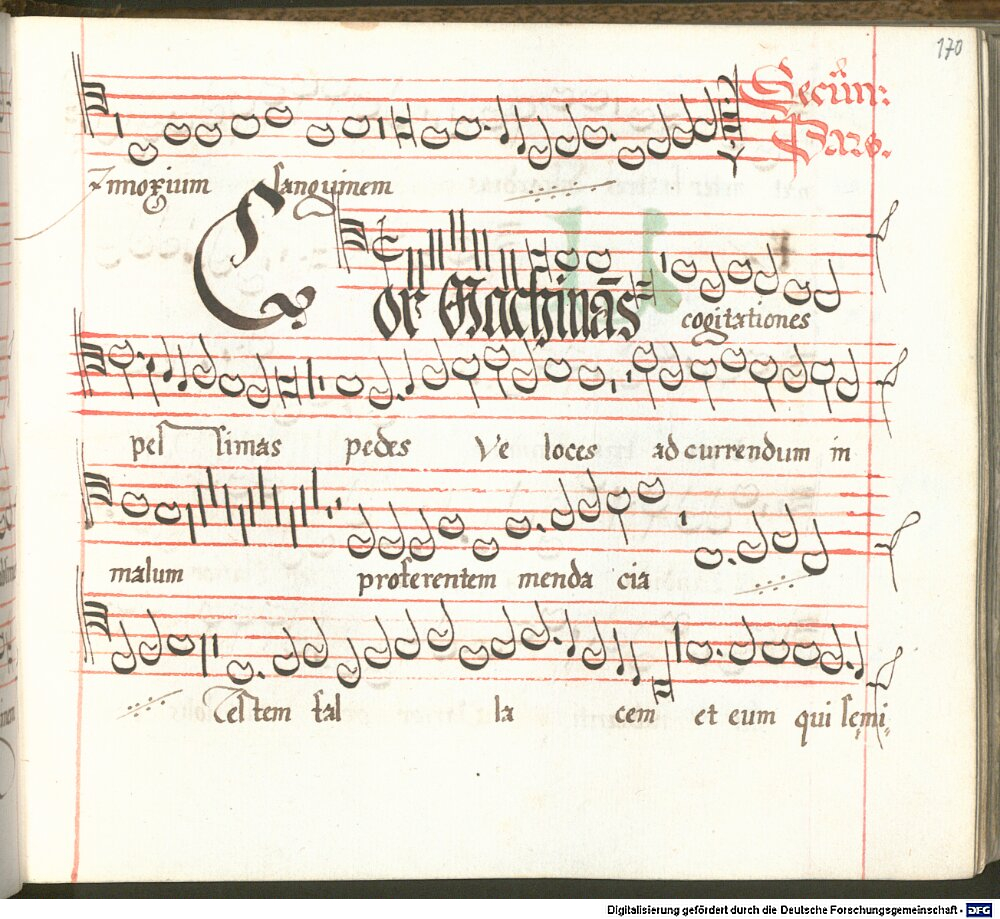 170
Secūn:
Pars.
Innoxium sanguinem
Cor Machinãs cogitationes
pes simas pedes Ve loces ad currendum in
malum proferentem menda cia
Testem fal la cem et eum qui semi=
Digitalisierung gefördert durch die Deutsche Forschungsgemeinschaft - DFG